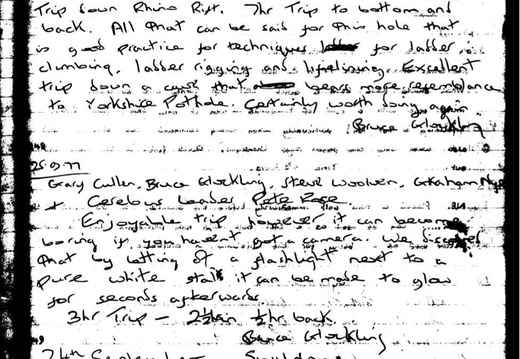 Trip down Rhino Rift. 7hr Trip to bottom and
back. All that can be said for this hole that
is good practice for techniques for ladder
climbing, ladder rigging and lifelining. Excellent
trip down a cave that bears more resemblance
to Yorkshire Pothole. Certainly worth doing again.
Bruce Glockling
25.9.77
Gary Cullen, Bruce Glockling, Steve Woolven, Graham
+ Cerebus Leader Pete Rose
Enjoyable trip, however it can become
boring if you haven't got a camera. We discovered
that by letting of a flashlight next to a
pure white stal it can be made to glow
for seconds afterwards.
3hr Trip - 2½ in ½hr back.
Bruce Glockling
24th September -